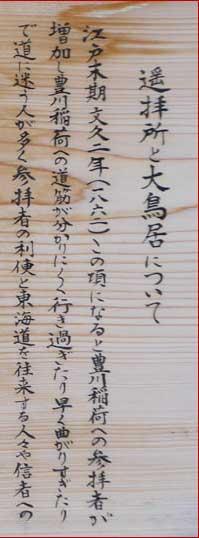 遥拝所と大鳥居について
江戸末期文久二年(一八六二)この頃になると豊川稲荷への参拝者が
増加し豊川稲荷への道筋が分かりにくく行き過ぎたり早く曲がりすぎたり
で道に迷う人が多く参拝者の利便と東海道を往来する人々や信者への